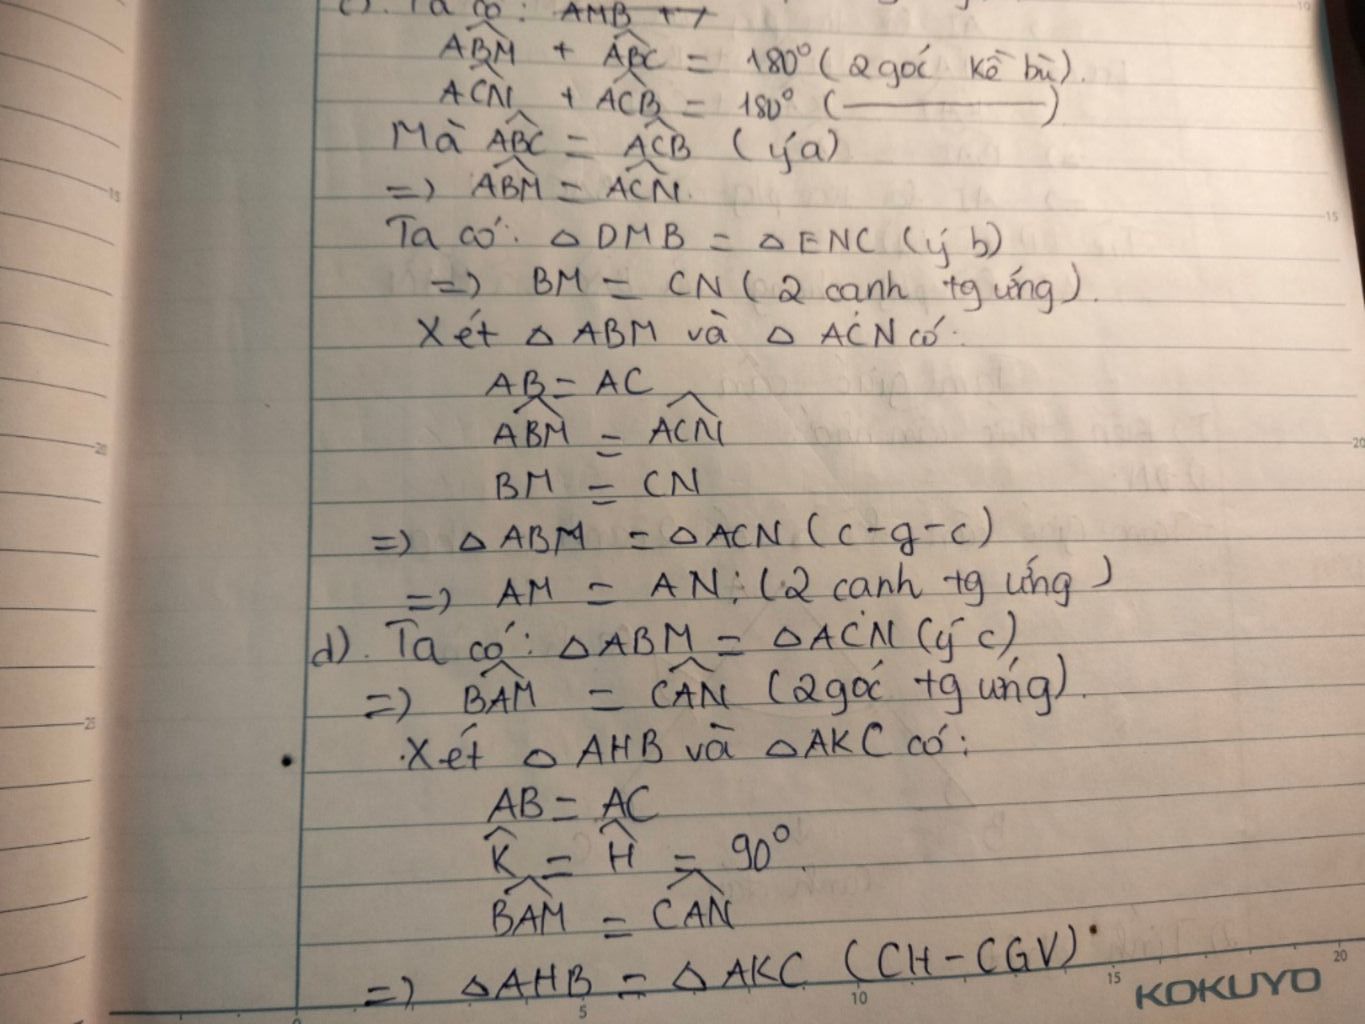 c). Ta có: AMB + 7
ABM + ABC = 180° (2 góc kề bù).
ACN + ACB = 180° (————)
Mà ABC = ACB (ý a)
=> ABM = ACN.
Ta có: △ DMB = △ ENC (ý b)
=> BM = CN (2 cạnh tg ứng).
Xét △ ABM và △ ACN có:
AB = AC
ABM = ACN
BM = CN
=> △ ABM = △ ACN (c-g-c)
=> AM = AN: (2 canh tg ứng)
d). Ta có: △ ABM = △ ACN (ý c)
=> BAM = CAN (2 góc tg ứng).
Xét △ AHB và △ AKC có:
AB = AC
K = H = 90°.
BAM = CAN
=> △ AHB = △ AKC (CH-CGV)
KOKUYO